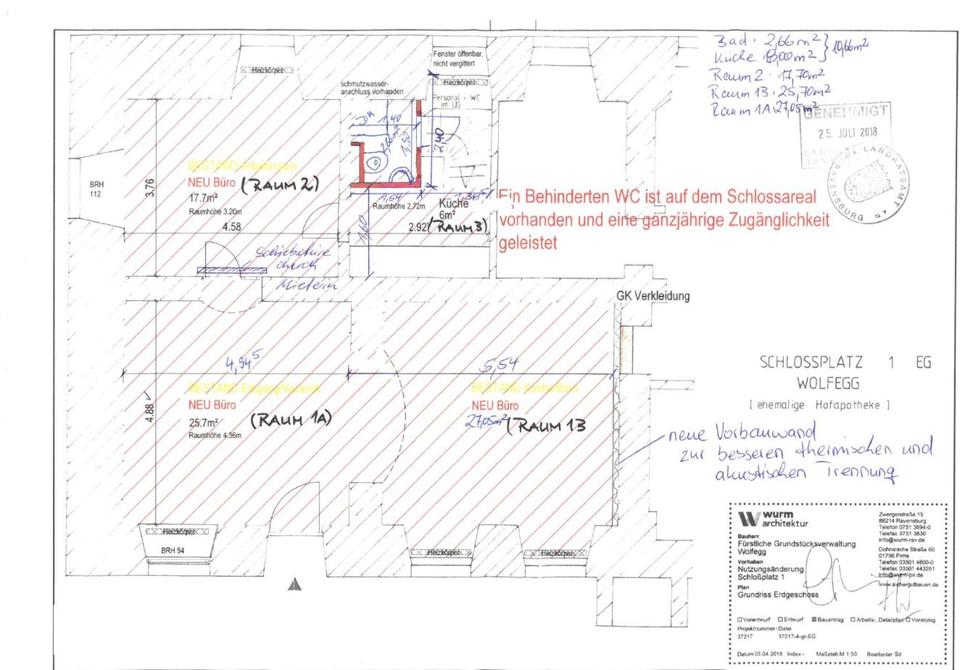 Bad : 2,66m² } 10,66m²
Küche : 8,00m² }
Raum 2 : 17,70m²
Raum 1B : 25,70m²
Raum 1A : 27,05m²
GENEHMIGT
25. JULI 2018
LANDRATSAMT
RAVENSBURG
Fenster öffenbar,
nicht vergittert
Heizkörper
Heizkörper
schmutzwasser-
anschluss vorhanden
Personal - WC
im UG
1,40
2,40
BRH
112
3.76
BESTAND
NEU Büro (RAUM 2)
17.7m²
Raumhöhe 3.20m
4.58
1,54
Raumhöhe 2.72m
Küche
6m²
2.92 (RAUM 3)
1,60
Ein Behinderten WC ist auf dem Schlossareal
vorhanden und eine ganzjährige Zugänglichkeit
geleistet
Schiebetüre
durch
Mieterin
GK Verkleidung
4,94⁵
5,54
4.88
BESTAND
NEU Büro
25.7m² (RAUM 1A)
Raumhöhe 4.36m
BESTAND
NEU Büro
27,05m² (RAUM 1B
SCHLOSSPLATZ 1 EG
WOLFEGG
[ ehemalige Hofapotheke ]
neue Vorbauwand
zur besseren thermischen und
akustischen Trennung
Heizkörper
BRH 94
Heizkörper
Heizkörper
wurm
architektur
Zwergerstraße 15
88214 Ravensburg
Telefon 0751 3894-0
Telefax 0751 3830
info@wurm-rav.de
Dohnaische Straße 60
01796 Pirna
Telefon 03501 4600-0
Telefax 03501 443261
info@wurm-pir.de
Bauherr
Fürstliche Grundstücksverwaltung
Wolfegg
Vorhaben
Nutzungsänderung
Schloßplatz 1
Plan
Grundriss Erdgeschoss
☐ Vorentwurf ☐ Entwurf ☒ Bauantrag ☐ Arbeits-, Detailplan ☐ Vorabzug
Projektnummer / Datei
37217 37217-4-gr-EG
Datum 05.04.2018 Index - Maßstab M 1:50 Bearbeiter Sd